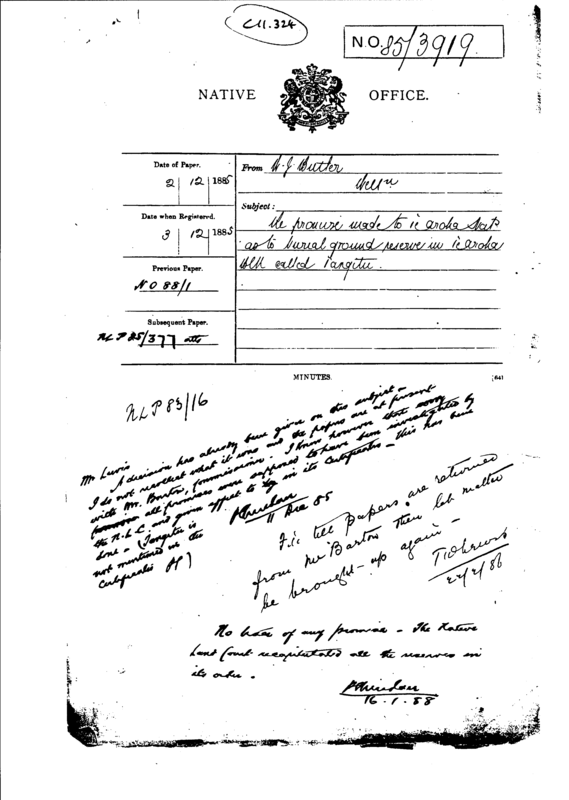 CM.324
N.O. 85/3919
NATIVE OFFICE.
Date of Paper.
2 | 12 | 1885
Date when Registered.
3 | 12 | 1885
Previous Paper.
NO 88/1
Subsequent Paper.
NLP 85/377 atts
From W. J. Butler
Welln
Subject:
The promise made to Te Aroha
as to burial ground reserve in Te Aroha
Blk called Tangitu.
MINUTES.
NLP 83/16
Mr Lewis
A decision has already been given on this subject –
I do not recollect what it was and the papers are at present
with Mr. Barton, Commissioner. I know however that
all promises were supposed to have been investigated by
the N.L.C. and given effect to by in its Certificates – this has been
done – (Tangitu is
not mentioned in the
Certificates)
11 Dec 85
File till papers are returned
from Mr Barton then let matter
be brought-up again –
22/2/86
No trace of any promise – The Native
Land Court recapitulated all the reserves in
its order.
16.1.88